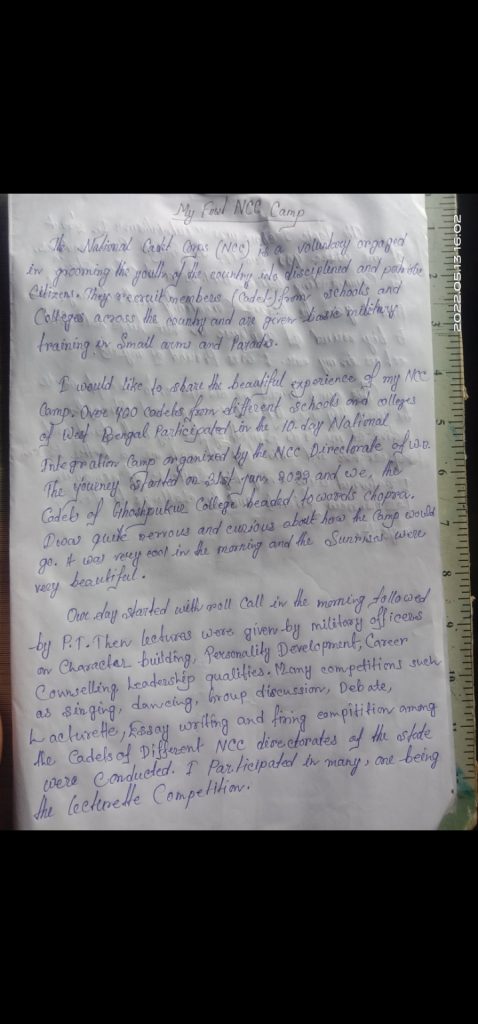 My First NCC Camp
The National Cadet Corps (NCC) is a voluntary
in grooming the youth of the country into disciplined and patriotic
Citizens. They recruit members (Cadet) from schools and
Colleges across the country and are given basic military
training in Small arms and Parades.
I would like to share the beautiful experience of my NCC
Camp. Over 400 cadets from different schools and colleges
of West Bengal Participated in the 10-day National
Integration Camp organized by the NCC Directorate of W.B.
The journey Started on 31st Jan, 2022 and we, the
Cadets of Ghoshpukur College headed towards Chopra.
I was quite nervous and curious about how the Camp would
go. It was very cool in the morning and the Sunrises were
very beautiful.
Our day started with roll Call in the morning followed
by P.T. Then lectures were given by military officers
on Character building, Personality Development, Career
Counselling, Leadership qualities. Many competitions such
as Singing, dancing, Group discussion, Debate,
Lacturette, Essay writing and firing compitition among
the Cadets of Different NCC directorates of the state
were Conducted. I Participated in many, one being
the lecturette Competition.
2022.05.13 16:02
2
3
4
5
6
7
8
9
10